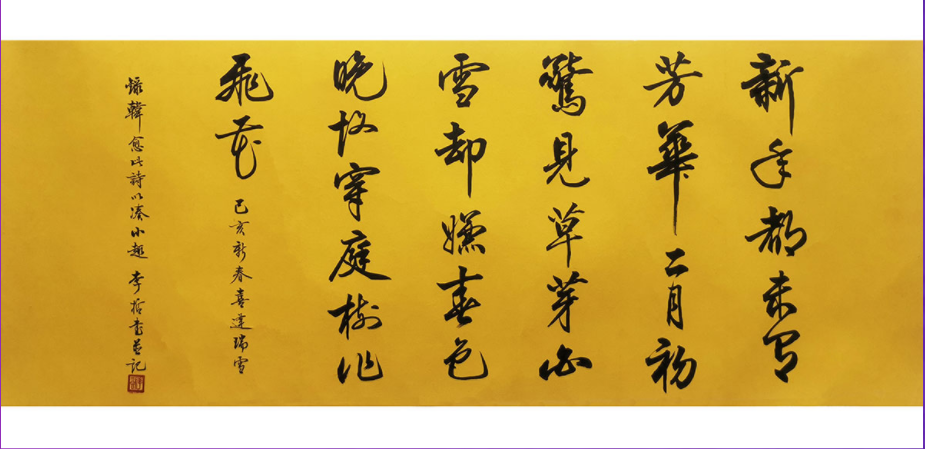 新年都未有
芳華二月初
驚見草芽白
雪却嫌春色
晚故穿庭樹作
飛花
己亥新春喜逢瑞雪
錄韓愈此詩以湊小趣 李哲書並記